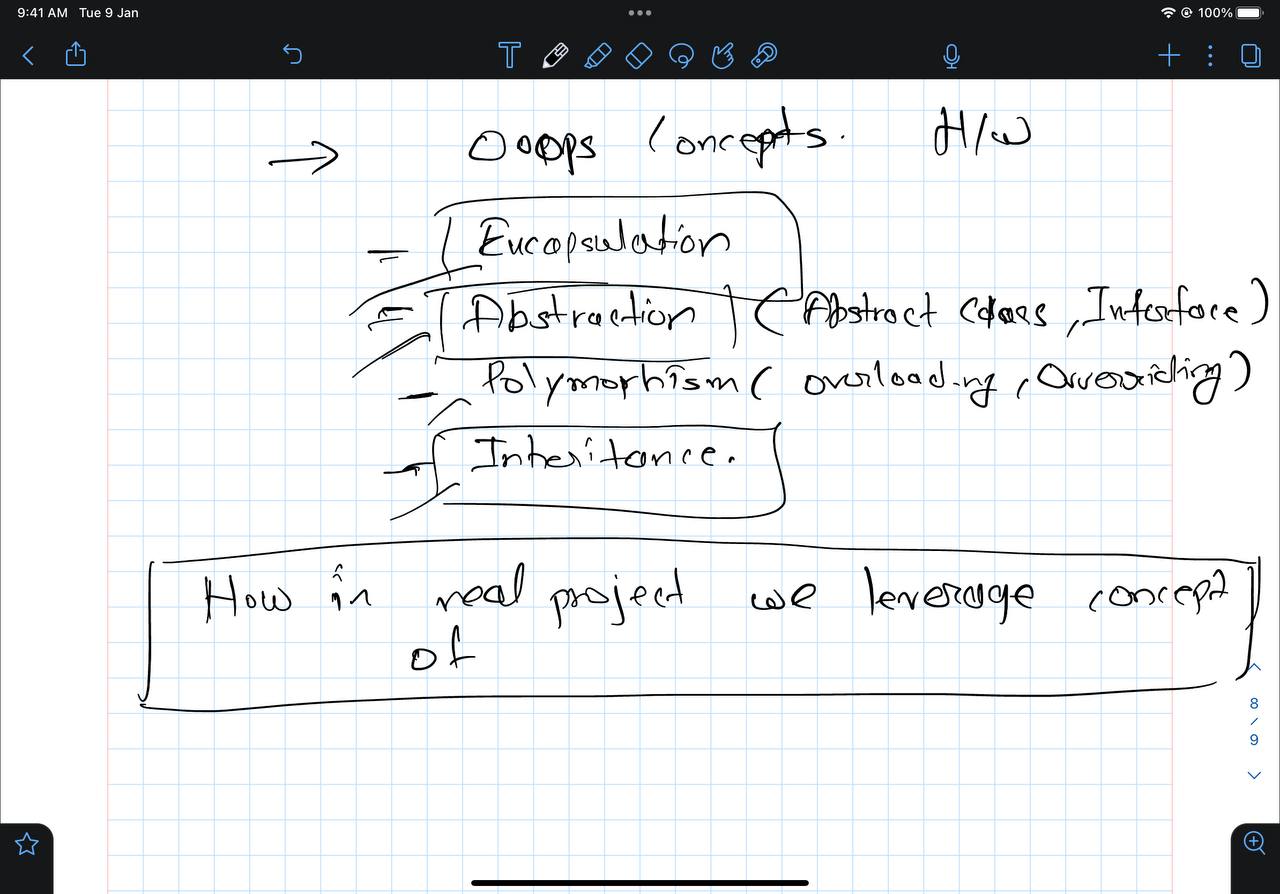 9:41 AM Tue 9 Jan
100%
→ Ooops Concepts. H/W
= Encapsulation
= Abstraction (Abstract class, Interface)
- Polymorphism (overloading, Overriding)
→ Inheritance.
How in real project we leverage concept
of
8
/
9